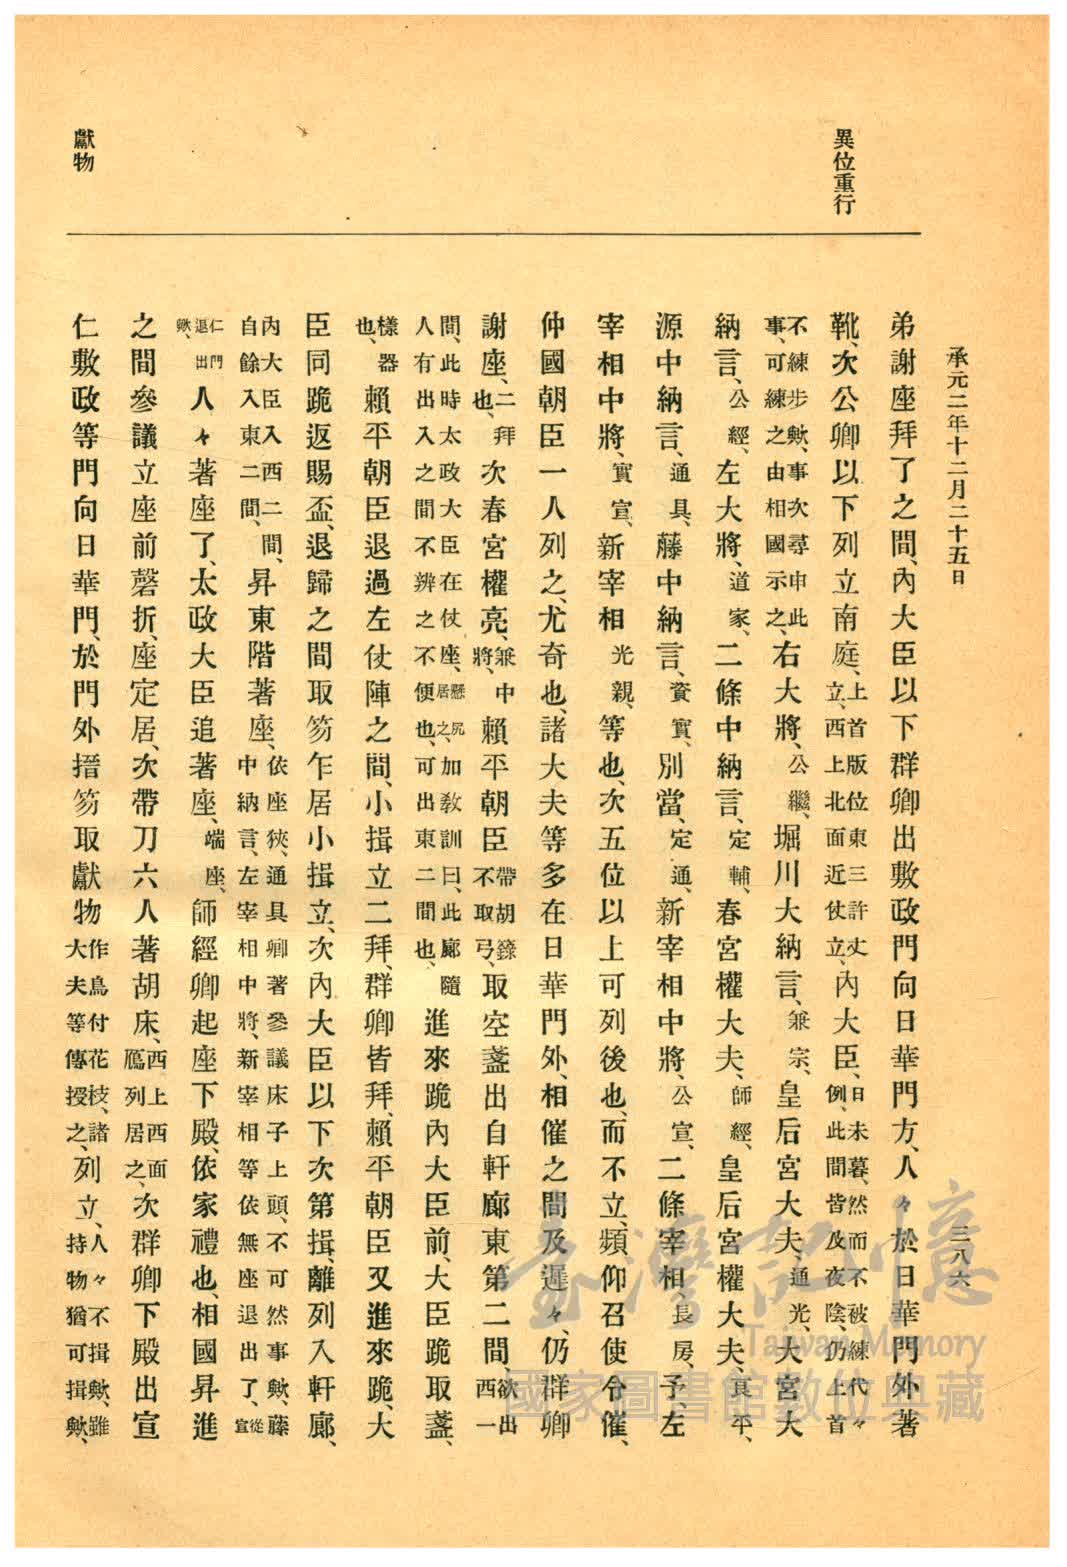 承元二年十二月二十五日
三八六
異位重行
獻物
弟謝座拜了之間、內大臣以下群卿出敷政門向日華門方、人々於日華門外著
靴、次公卿以下列立南庭、上首版位東三許丈立、西上北面近仗立、內大臣、日未暮、然而不被練代々例、此間皆及夜陰、仍上首
不練步歟、事次尋申此事、可練之由相國示之、右大將、公繼、堀川大納言、兼宗、皇后宮大夫、通光、大宮大
納言、公經、左大將、道家、二條中納言、定輔、春宮權大夫、師經、皇后宮權大夫、良平、
源中納言、通具、藤中納言、資實、別當、定通、新宰相中將、公宣、二條宰相、長房、予、左
宰相中將、實宣、新宰相光親、等也、次五位以上可列後也、而不立、頻仰召使令催、
仲國朝臣一人列之、尤奇也、諸大夫等多在日華門外、相催之間及遲々、仍群卿
謝座、二拜也、次春宮權亮、兼中將、賴平朝臣帶胡籙不取弓、取空盞出自軒廊東第二間、欲出西一
間、此時太政大臣在仗座、懸尻居之、加敎訓曰、此廊隨人有出入之間不辨之不便也、可出東二間也、進來跪內大臣前、大臣跪取盞、
樣器也、賴平朝臣退過左仗陣之間、小揖立二拜、群卿皆拜、賴平朝臣又進來跪、大
臣同跪返賜盃、退歸之間取笏乍居小揖立、次內大臣以下次第揖、離列入軒廊、
內大臣入西二間、自餘入東二間、昇東階著座、依座狹、通具卿著參議床子上頭、不可然事歟、藤中納言、左宰相中將、新宰相等依無座退出了、從宣
仁門退出歟、人々著座了、太政大臣追著座、端座、師經卿起座下殿、依家禮也、相國昇進
之間參議立座前磬折、座定居、次帶刀六人著胡床、西上西面鴈列居之、次群卿下殿出宣
仁敷政等門向日華門、於門外搢笏取獻物作鳥付花枝、諸大夫等傳授之、列立、人々不揖歟、雖持物猶可揖歟、
臺灣記憶
Taiwan Memory
國家圖書館數位典藏